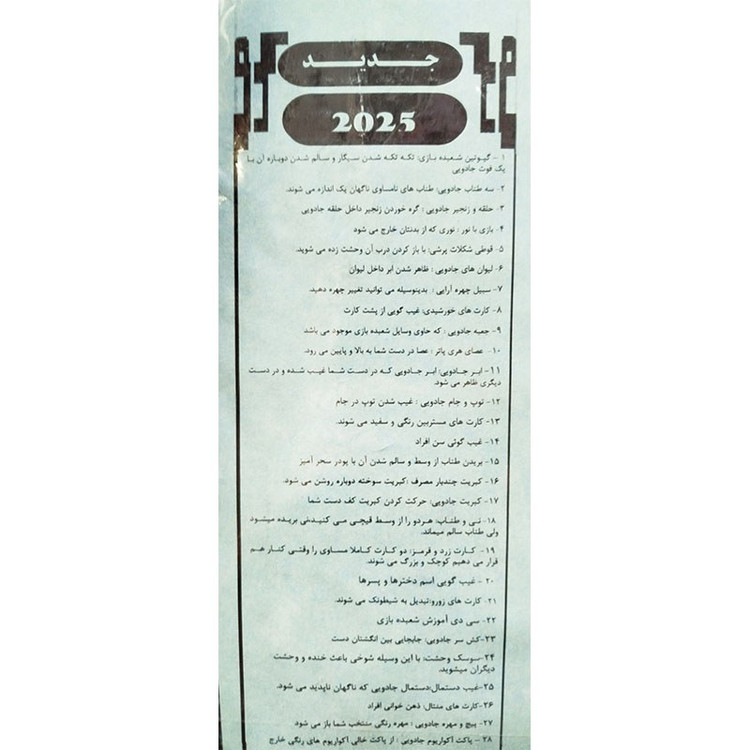 جدید
2025
۱ - گیوتین شعبده بازی: تکه تکه شدن سیگار و سالم شدن دوباره آن با
یک فوت جادویی
۲- سه طناب جادویی: طناب های نامساوی ناگهان یک اندازه می شوند.
۳- حلقه و زنجیر جادویی : گره خوردن زنجیر داخل حلقه جادویی
۴- بازی با نور : نوری که از بدنتان خارج می شود
۵- قوطی شکلات پرشی: با باز کردن درب آن وحشت زده می شوید.
۶- لیوان های جادویی : ظاهر شدن ابر داخل لیوان
۷- سبیل چهره آرایی : بدینوسیله می توانید تغییر چهره دهید.
۸- کارت های خورشیدی: غیب گویی از پشت کارت
۹- جعبه جادویی : که حاوی وسایل شعبده بازی موجود می باشد
۱۰- عصای هری پاتر : عصا در دست شما به بالا و پایین می رود.
۱۱- ابر جادویی: ابر جادویی که در دست شما غیب شده و در دست
دیگری ظاهر می شود.
۱۲- توپ و جام جادویی : غیب شدن توپ در جام
۱۳- کارت های مستربین رنگی و سفید می شوند.
۱۴- غیب گوئی سن افراد
۱۵- بریدن طناب از وسط و سالم شدن آن با پودر سحر آمیز
۱۶- کبریت چندبار مصرف :کبریت سوخته دوباره روشن می شود.
۱۷- کبریت جادویی: حرکت کردن کبریت کف دست شما
۱۸- نی و طناب: هردو را از وسط قیچی می کنیدنی بریده میشود
ولی طناب سالم میماند.
۱۹- کارت زرد و قرمز: دو کارت کاملا مساوی را وقتی کنار هم
قرار می دهیم کوچک و بزرگ می شوند.
۲۰- غیب گویی اسم دخترها و پسرها
۲۱- کارت های زورو:تبدیل به شیطونک می شوند.
۲۲- سی دی آموزش شعبده بازی
۲۳-کش سر جادویی: جابجایی بین انگشتان دست
۲۴-سوسک وحشت: با این وسیله شوخی باعث خنده و وحشت
دیگران میشوید.
۲۵-غیب دستمال:دستمال جادویی که ناگهان ناپدید می شود.
۲۶-کارت های منتال: ذهن خوانی افراد
۲۷- پیچ و مهره جادویی : مهره رنگی منتخب شما باز می شود
۲۸- پاکت آکواریوم جادویی : از پاکت خالی آکواریوم های رنگی خارج